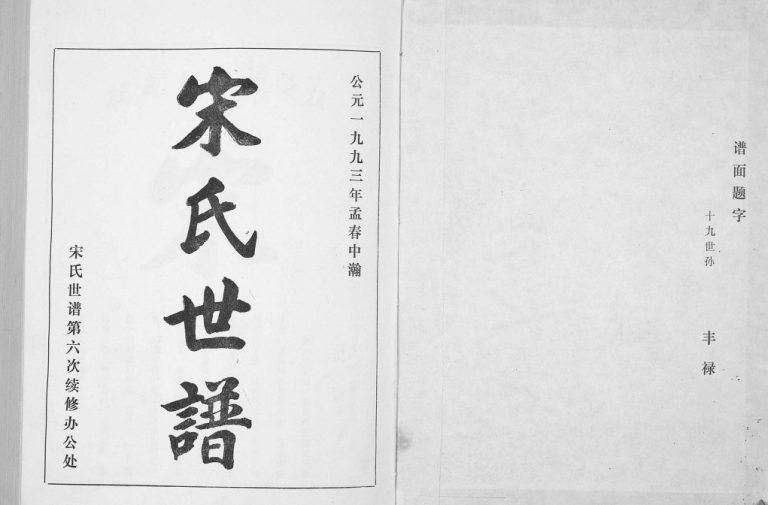 谱面题字
十九世孙 丰禄
公元一九九三年孟春中瀚
宋氏世譜
宋氏世谱第六次续修办公处